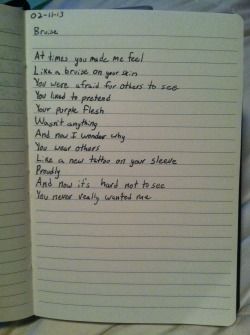 02-11-13
Bruise
At times you made me feel
Like a bruise on your skin
You were afraid for others to see
You liked to pretend
Your purple flesh
Wasn't anything
And now I wonder why
You wear others
Like a new tattoo on your sleeve
Proudly
And now it's hard not to see
You never really wanted me